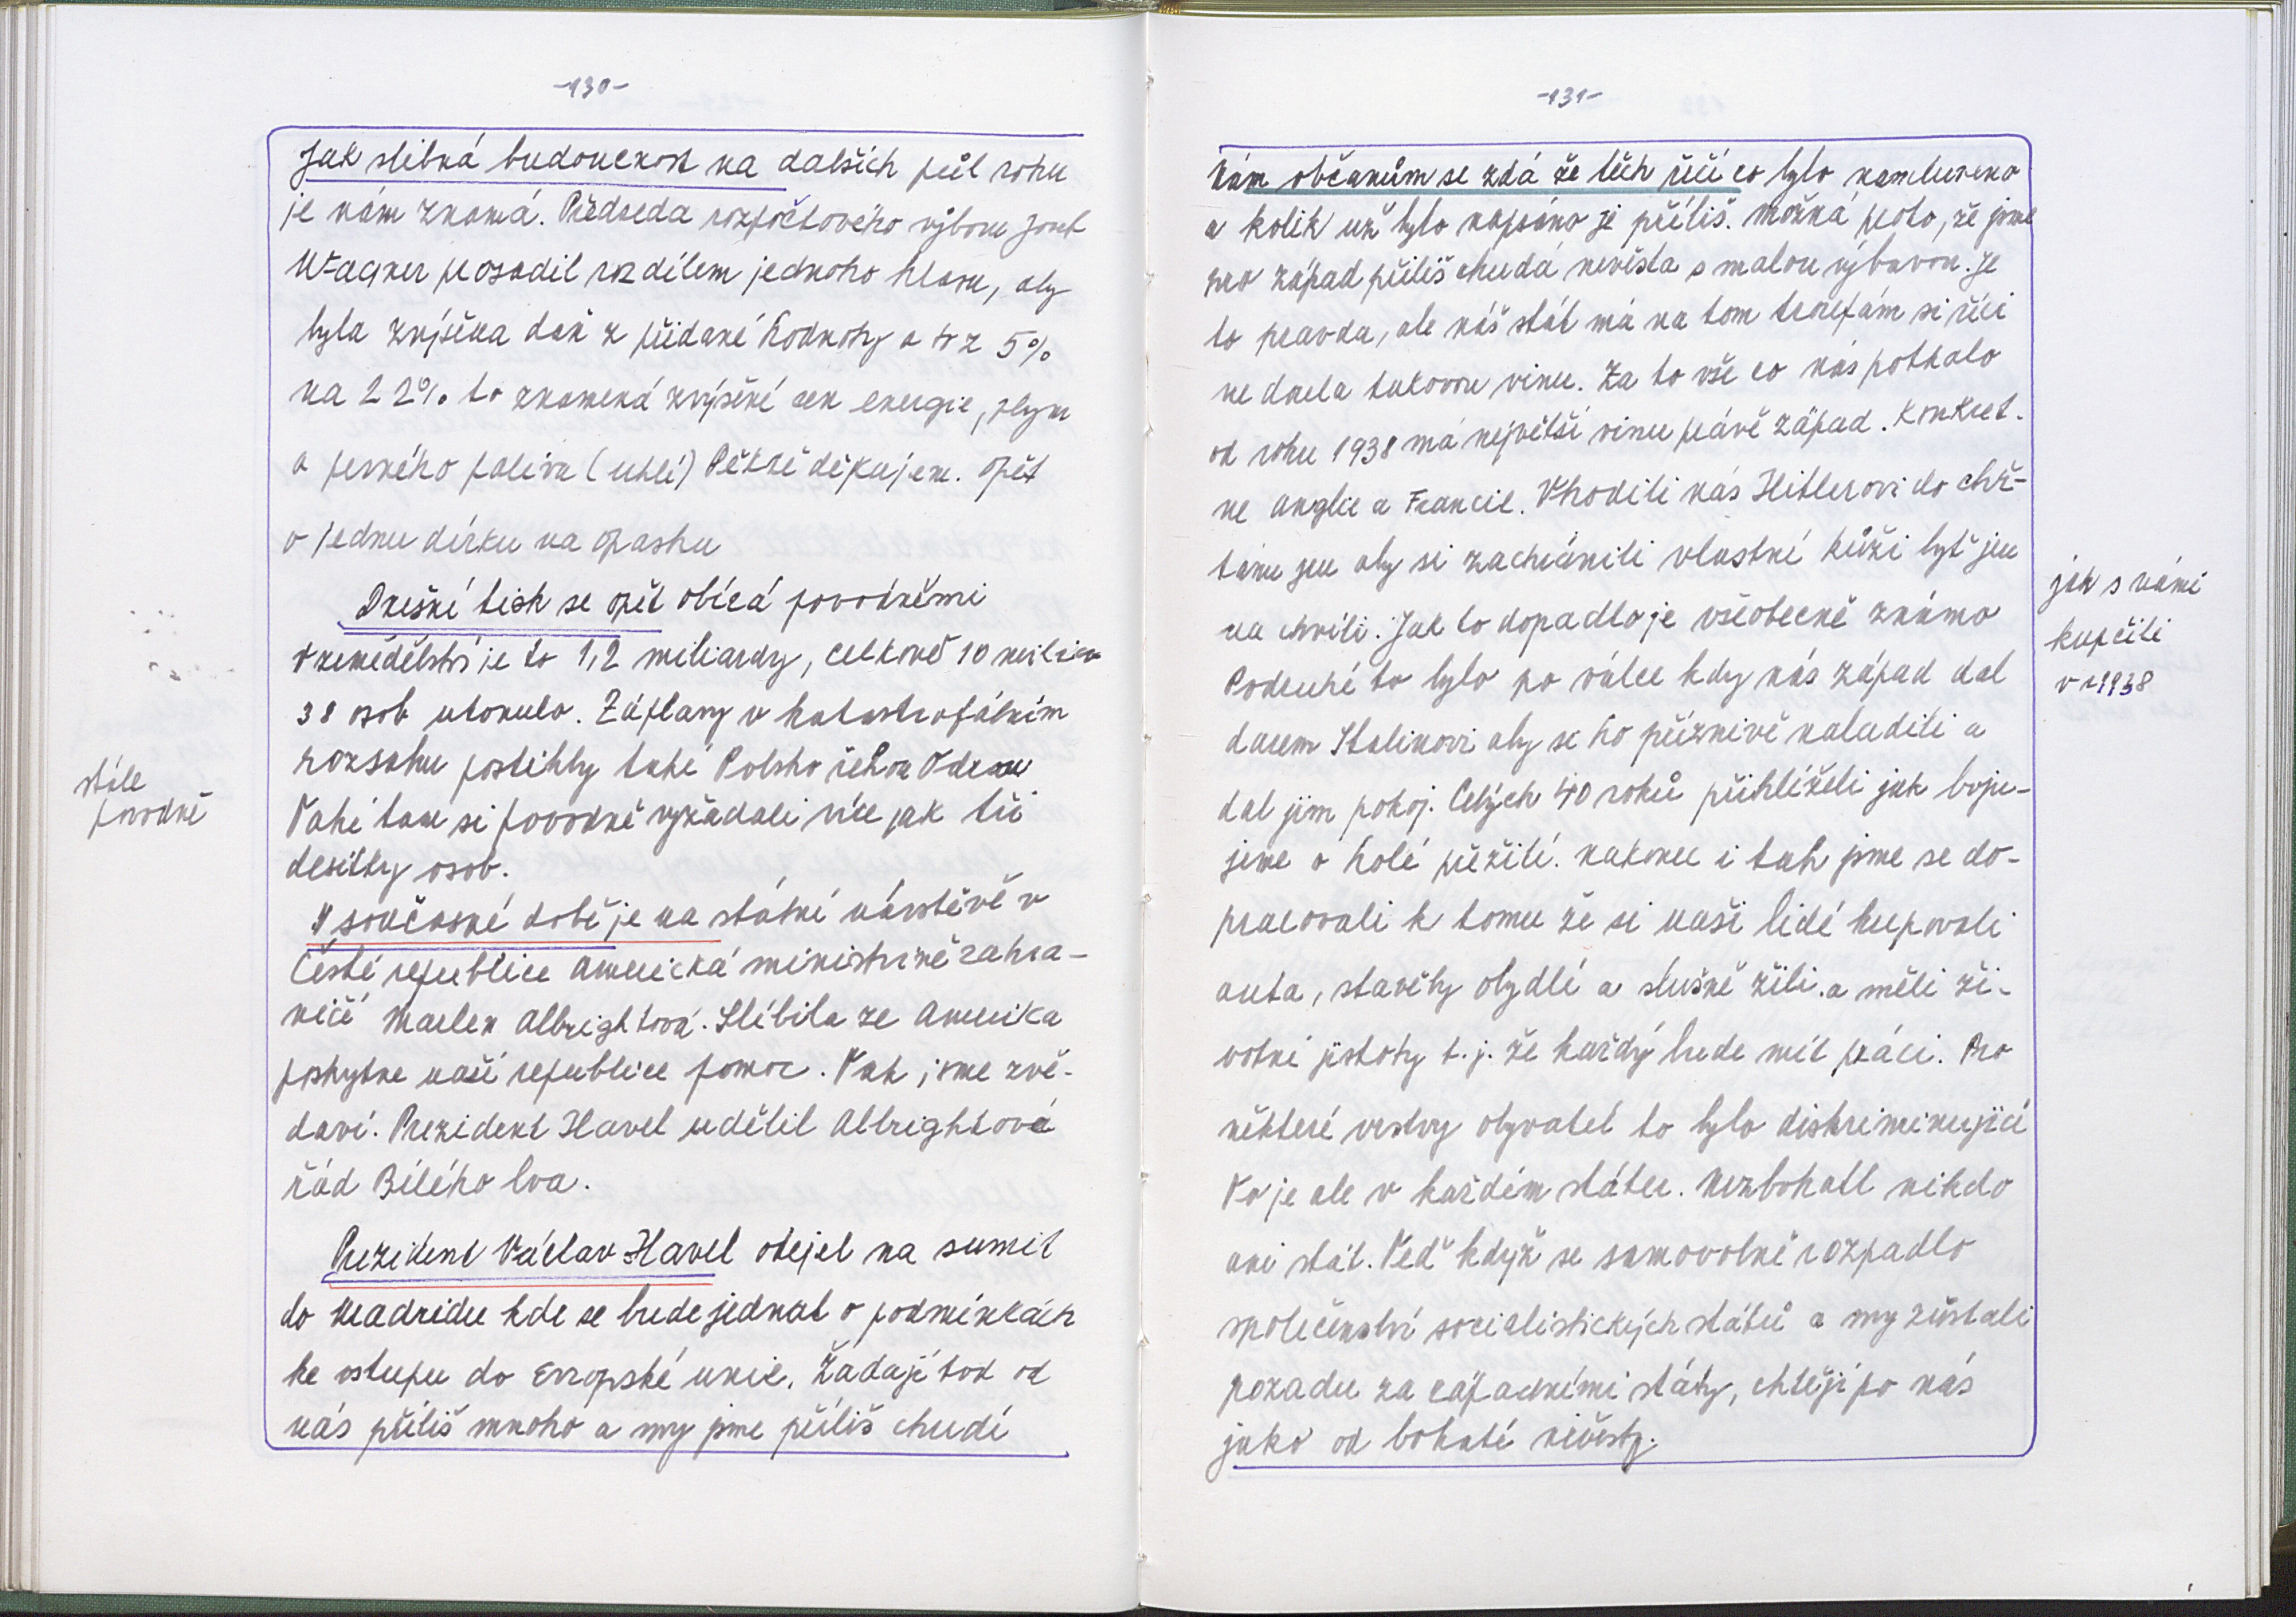 -130-
Jak slibná budoucnost na dalších půl roku
je nám známá. Předseda rozpočtového výboru Josef
Wagner prosadil rozdílem jednoho hlasu, aby
byla zvýšena daň z přidané hodnoty a to z 5%
na 22% to znamená zvýšení cen energie, plynu
a pevného paliva (uhlí) Pěkně děkujem. Opět
o jednu dírku na opasku
Dnešní tisk se opět obírá povodněmi
V zemědělství je to 1,2 miliardy, celkově 10 miliard
38 osob utonulo. Záplavy v katastrofálním
rozsahu postihly také Polsko řekou Odrou
Také tam si povodně vyžádali více jak tři
desítky osob.
stále
povodně
V současné době je na státní návštěvě v
České republice Americká ministrině zahra-
ničí Marlen Albrightová. Slíbila ze Amerika
poskytne naší republice pomoc. Tak jsme zvě-
daví. Prezident Havel udělil Albrightové
řád Bílého lva.
Prezident Václav Havel odejel na sumit
do Madridu kde se bude jednat o podmínkách
ke vstupu do Evropské unie. Žádají tod od
nás příliš mnoho a my jsme příliš chudí
-131-
Nám občanům se zdá že těch řečí co bylo namluveno
a kolik už bylo napsáno je příliš. Možná proto, že jsme
pro západ příliš chudá nevěsta s malou výbavou. Je
to pravda, ale náš stát má na tom troufám si říci
ne dnela takovou vinu. Za to vše co nás potkalo
od roku 1938 má největší vinu právě západ. Konkret-
ne Anglie a Francie. Vhodili nás Hitlerovi do chř-
tánu jen aby si zachránili vlastní kůži byť jen
na chvíli. Jak to dopadlo je všeobecně známo
Podruhé to bylo po válce kdy nás západ dal
darem Stalinovi aby si ho příznivě naladili a
dal jim pokoj. Celých 40 roků přihlíželi jak boju-
jeme o holé přežití. Nakonec i tak jsme se do-
pracovali k tomu že si naši lidé kupovali
auta, stavěly obydlí a slušně žili. a měli ži-
votní jistoty t.j. že každý bude mít práci. Pro
některé vrstvy obyvatel to bylo diskriminující
To je ale v každém státu. Nezbohatl nikdo
ani stát. Teď když se samovolně rozpadlo
společenství socialistických států a my zůstali
pozadu za západními státy, chtějí po nás
jako od bohaté nevěsty.
jak s námi
kupčili
v r 1938